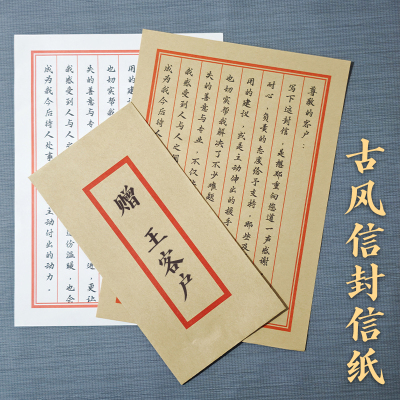 古风信封信纸
尊敬的客户：
写下这封信，是想郑重向您道一声感谢
耐心、负责的态度给予支持，那些及
用的建议，或是主动伸出的援手
也切实帮我解决了不少难题
失的善意与专业，不仅
我感受到人与人之间
成为我今后待人处
也切实帮我
失的善意与专业，
进，更让
我感受到人与人之
份温暖，也会
成为我今后待人处事
主动付出的动力，
赠 王客户